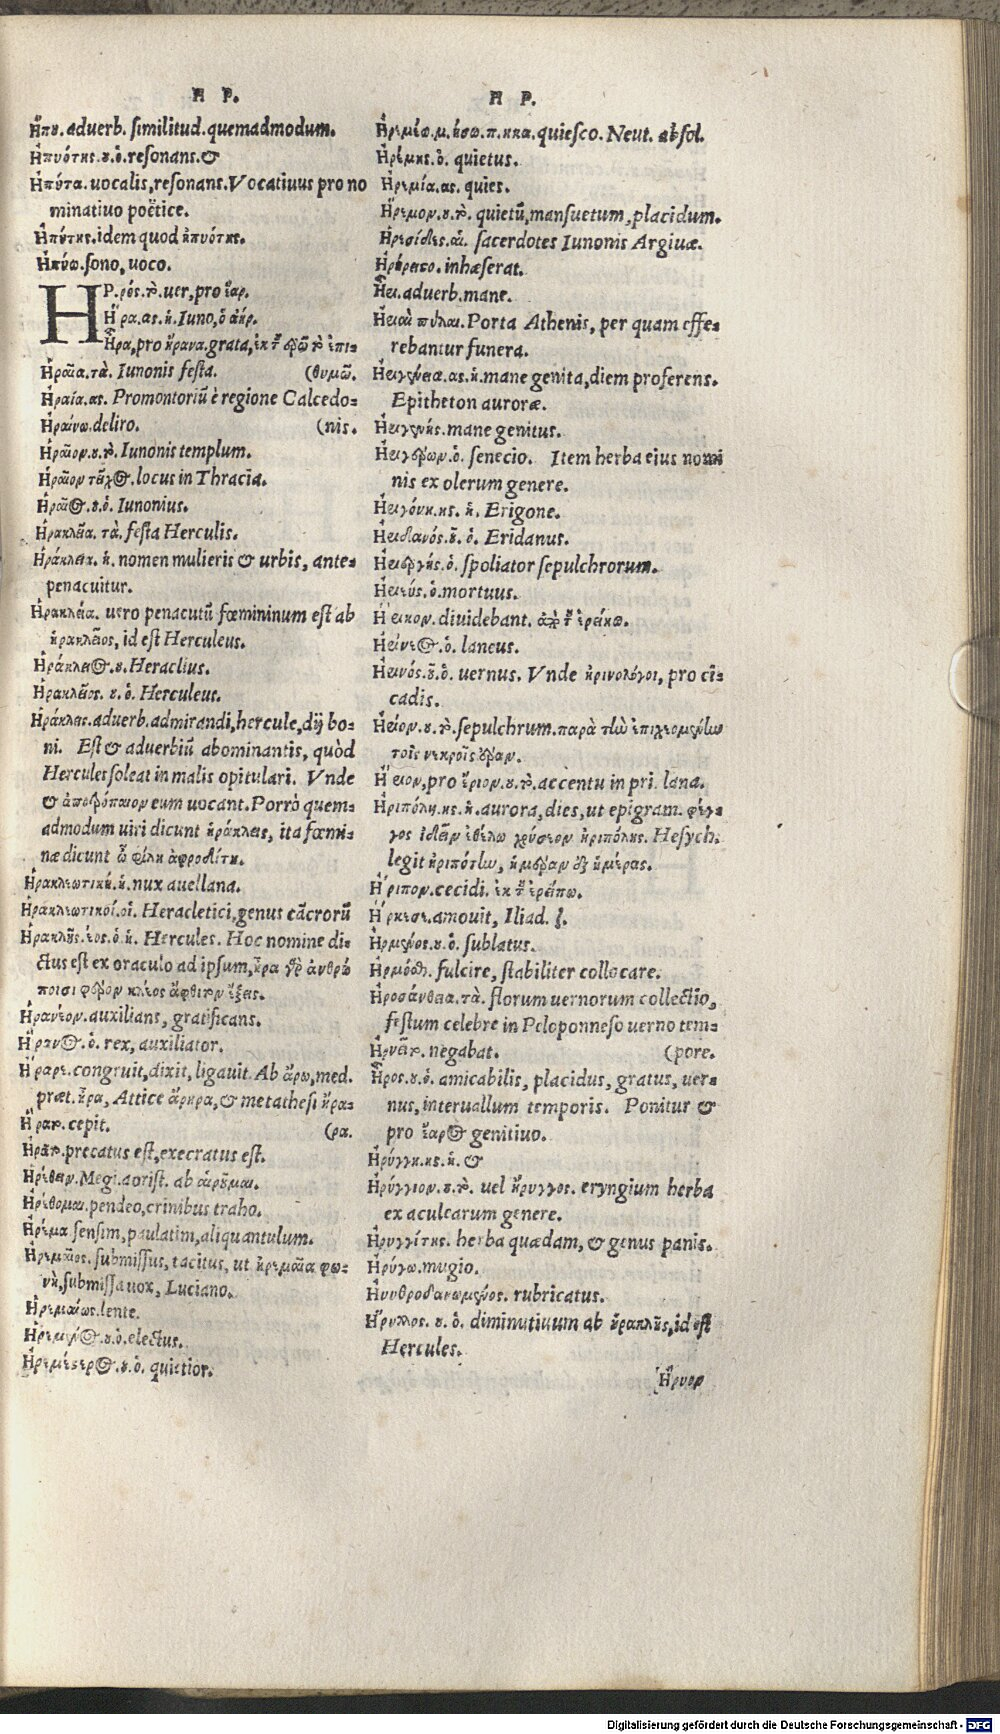 Η Ρ.
Ἤπου. aduerb. similitud. quemadmodum.
Ἠπυότης. ου. ὁ. resonans. &
Ἠπύτα. uocalis, resonans. Vocatiuus pro no
minatiuo poëtice.
Ἠπύτης. idem quod ἠπυότης.
Ἠπύω. sono, uoco.
ΗΡ. ρός. τὸ. uer, pro ἔαρ.
Ἥρα. ας. ἡ. Iuno, ὁ ἀὴρ.
Ἦρα, pro ἤρανα. grata, ἐκ τοῦ ἐρῶ τὸ ἐπι-
Ἡραῖα. τὰ. Iunonis festa. (θυμῶ.
Ἡραία. ας. Promontoriũ è regione Calcedo-
Ἠραίνω. deliro. (nis.
Ἡραῖον. ου. τὸ. Iunonis templum.
Ἡραῖον τεῖχος. locus in Thracia.
Ἡραῖος. ου. ὁ. Iunonius.
Ἡρακλεῖα. τὰ. festa Herculis.
Ἡράκλεια. ἡ. nomen mulieris & urbis, ante-
penacuitur.
Ἡρακλεία. uero penacutũ fœmininum est ab
ἡρακλεῖος, id est Herculeus.
Ἡράκλειος. ου. Heraclius.
Ἡρακλεῖος. ου. ὁ. Herculeus.
Ἡράκλεις. aduerb. admirandi, hercule, dij bo-
ni. Est & aduerbiũ abominantis, quòd
Hercules soleat in malis opitulari. Vnde
& ἀποτρόπαιον eum uocant. Porrò quem-
admodum uiri dicunt ἡράκλεις, ita fœmi-
næ dicunt ὦ φίλη ἀφροδίτη.
Ἡρακλεωτική. ἡ. nux auellana.
Ἡρακλεωτικοί. οἱ. Heracletici, genus cãcrorũ
Ἡρακλῆς. έος. ὁ. ἡ. Hercules. Hoc nomine di-
ctus est ex oraculo ad ipsum, ἦρα γὰρ ἀνθρώ
ποισι φέρον κλέος ἄφθιτον ἕξεις.
Ἠρανέον. auxilians, gratificans.
Ἤρανος. ὁ. rex, auxiliator.
Ἤραρε. congruit, dixit, ligauit. Ab ἄρω, med.
præt. ἦρα, Attice ἄρηρα, & metathesi ἤρα-
Ἤρατο. cepit. (ρα.
Ἠρᾶτο. precatus est, execratus est.
Megi. aorist. ab
Ἠρέθομαι. pendeo, crinibus traho.
Ἠρέμα sensim, paulatim, aliquantulum.
Ἠρεμαῖος. submissus, tacitus, ut ἠρεμαῖα φω-
νὴ, submissa uox, Luciano.
Ἠρεμαίως. lente.
Ἠρεμένος. ου. ὁ. electus.
Ἠρεμέστερος. ου. ὁ. quietior.
Η Ρ.
Ἠρεμέω. μ. ήσω. π. ηκα. quiesco. Neut. absol.
Ἠρέμης. ὁ. quietus.
Ἠρεμία. ας. quies.
Ἤρεμον. ου. τὸ. quietũ, mansuetum, placidum.
Ἡρεσίδες. αἱ. sacerdotes Iunonis Argiuæ.
Ἠρήρειστο. inhæserat.
Ἦρι. aduerb. mane.
Ἠρίαι πύλαι. Porta Athenis, per quam effe-
rebantur funera.
Ἠριγένεια. ας. ἡ. mane genita, diem proferens.
Epitheton auroræ.
Ἠριγενής. mane genitus.
Ἠριγέρων. ὁ. senecio. Item herba eius nomi
nis ex olerum genere.
Ἠριγόνη. ης. ἡ. Erigone.
Ἠριδανός. οῦ. ὁ. Eridanus.
Ἠριεργής. ὁ. spoliator sepulchrorum.
Ἠριεύς. ὁ. mortuus.
Ἤρικον. diuidebant. ἀπὸ τοῦ ἐρείκω.
Ἠρίνεος. ὁ. laneus.
Ἠρινός. οῦ. ὁ. uernus. Vnde ἠρινολόγοι, pro ci-
cadis.
Ἠρίον. ου. τὸ. sepulchrum. παρὰ τὴν ἐπιχεομένην
τοῖς νεκροῖς ἔραν.
Ἤριον, pro ἔριον. ου. τὸ. accentu in pri. lana.
Ἠριπόλη. ης. ἡ. aurora, dies, ut epigram. φέγ-
γος ἰδεῖν ἐθέλω χρύσεον ἠριπόλης. Hesych.
legit ἠριπότην, ἡμέραν ἐξ ἡμέρας.
Ἤριπον. cecidi. ἐκ τοῦ ἐρείπω.
Ἤρκεσε. amouit, Iliad. ζ.
Ἠρμένος. ου. ὁ. sublatus.
fulcire, stabiliter collocare.
Ἠροσάνθεια. τὰ. florum uernorum collectio,
festum celebre in Peloponneso uerno tem-
Ἠρνεῖτο. negabat. (pore.
Ἦρος. ου. ὁ. amicabilis, placidus, gratus, uer-
nus, interuallum temporis. Ponitur &
pro ἔαρος genitiuo.
Ἠρύγγη. ης. ἡ. &
Ἠρύγγιον. ου. τὸ. uel ἤρυγγος. eryngium herba
ex aculearum genere.
Ἠρυγγίτης. herba quædam, & genus panis.
Ἠρύγω. mugio.
rubricatus.
Ἥρυλλος. ου. ὁ. diminutiuum ab ἡρακλῆς, id est
Hercules.
Digitalisierung gefördert durch die Deutsche Forschungsgemeinschaft - DFG